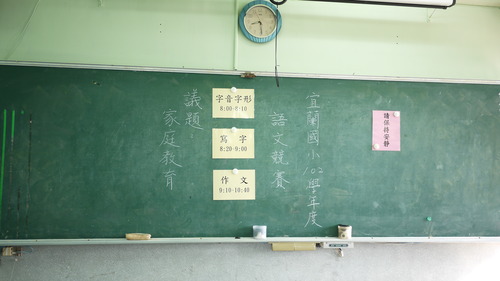 宜蘭國小102學年度
語文競賽
字音字形
8:00-8:10
寫字
8:20-9:00
作文
9:10-10:40
議題
家庭教育
請保持安靜